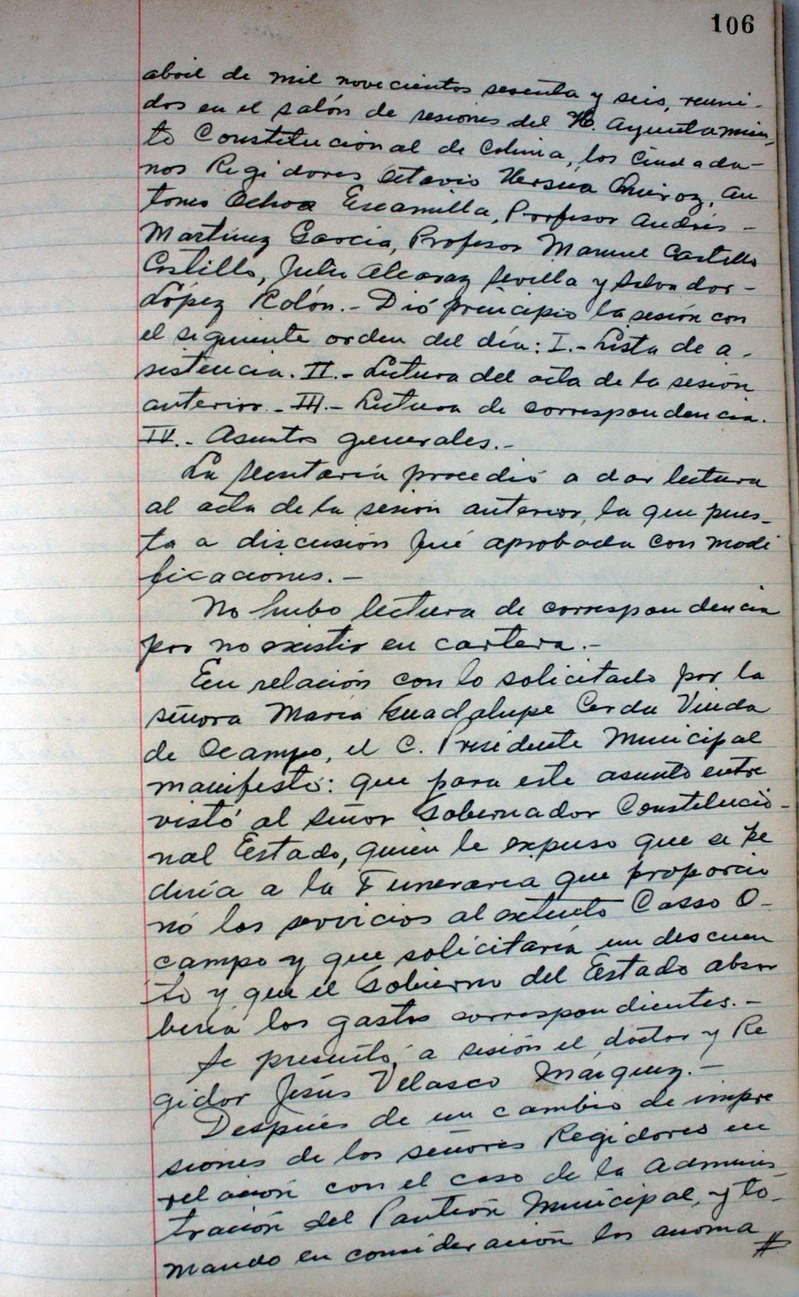 106
abril de mil novecientos sesenta y seis, reuni-
dos en el salón de sesiones del H. Ayuntamien-
to Constitucional de Colima, los Ciudada-
nos Regidores Octavio Urzúa Quiroz, An
tonio Ochoa Escamilla, Profesor Andrés -
Martínez García, Profesor Manuel Castillo
Castillo, Julio Alcaraz Sevilla y Salvador -
López Rolón.- Dió principio la sesión con
el siguiente orden del día: I.- Lista de a-
sistencia. II.- Lectura del acta de la sesión
anterior.- III.- Lectura de correspondencia.
IV.- Asuntos generales.-
La Secretaría procedió a dar lectura
al acta de la sesión anterior, la que pues-
ta a discusión fué aprobada con modi
ficaciones.-
No hubo lectura de correspondencia
por no existir en cartera.-
En relación con lo solicitado por la
señora María Guadalupe Cerda Viuda
de Ocampo, el C. Presidente Municipal
manifestó: que para este asunto entre
vistó al señor Gobernador Constitucio-
nal Estado, quien le expuso que se pe
diría a la Funeraria que proporcio
nó los servicios al extinto Casso O-
campo y que solicitaría un descuen
to y que el Gobierno del Estado absor
bería los gastos correspondientes.-
Se presentó a sesión el doctor y Re
gidor Jesús Velasco Márquez.-
Después de un cambio de impre
siones de los señores Regidores en
relación con el caso de la Adminis-
tración del Panteón Municipal, y to-
mando en consideración las anoma #